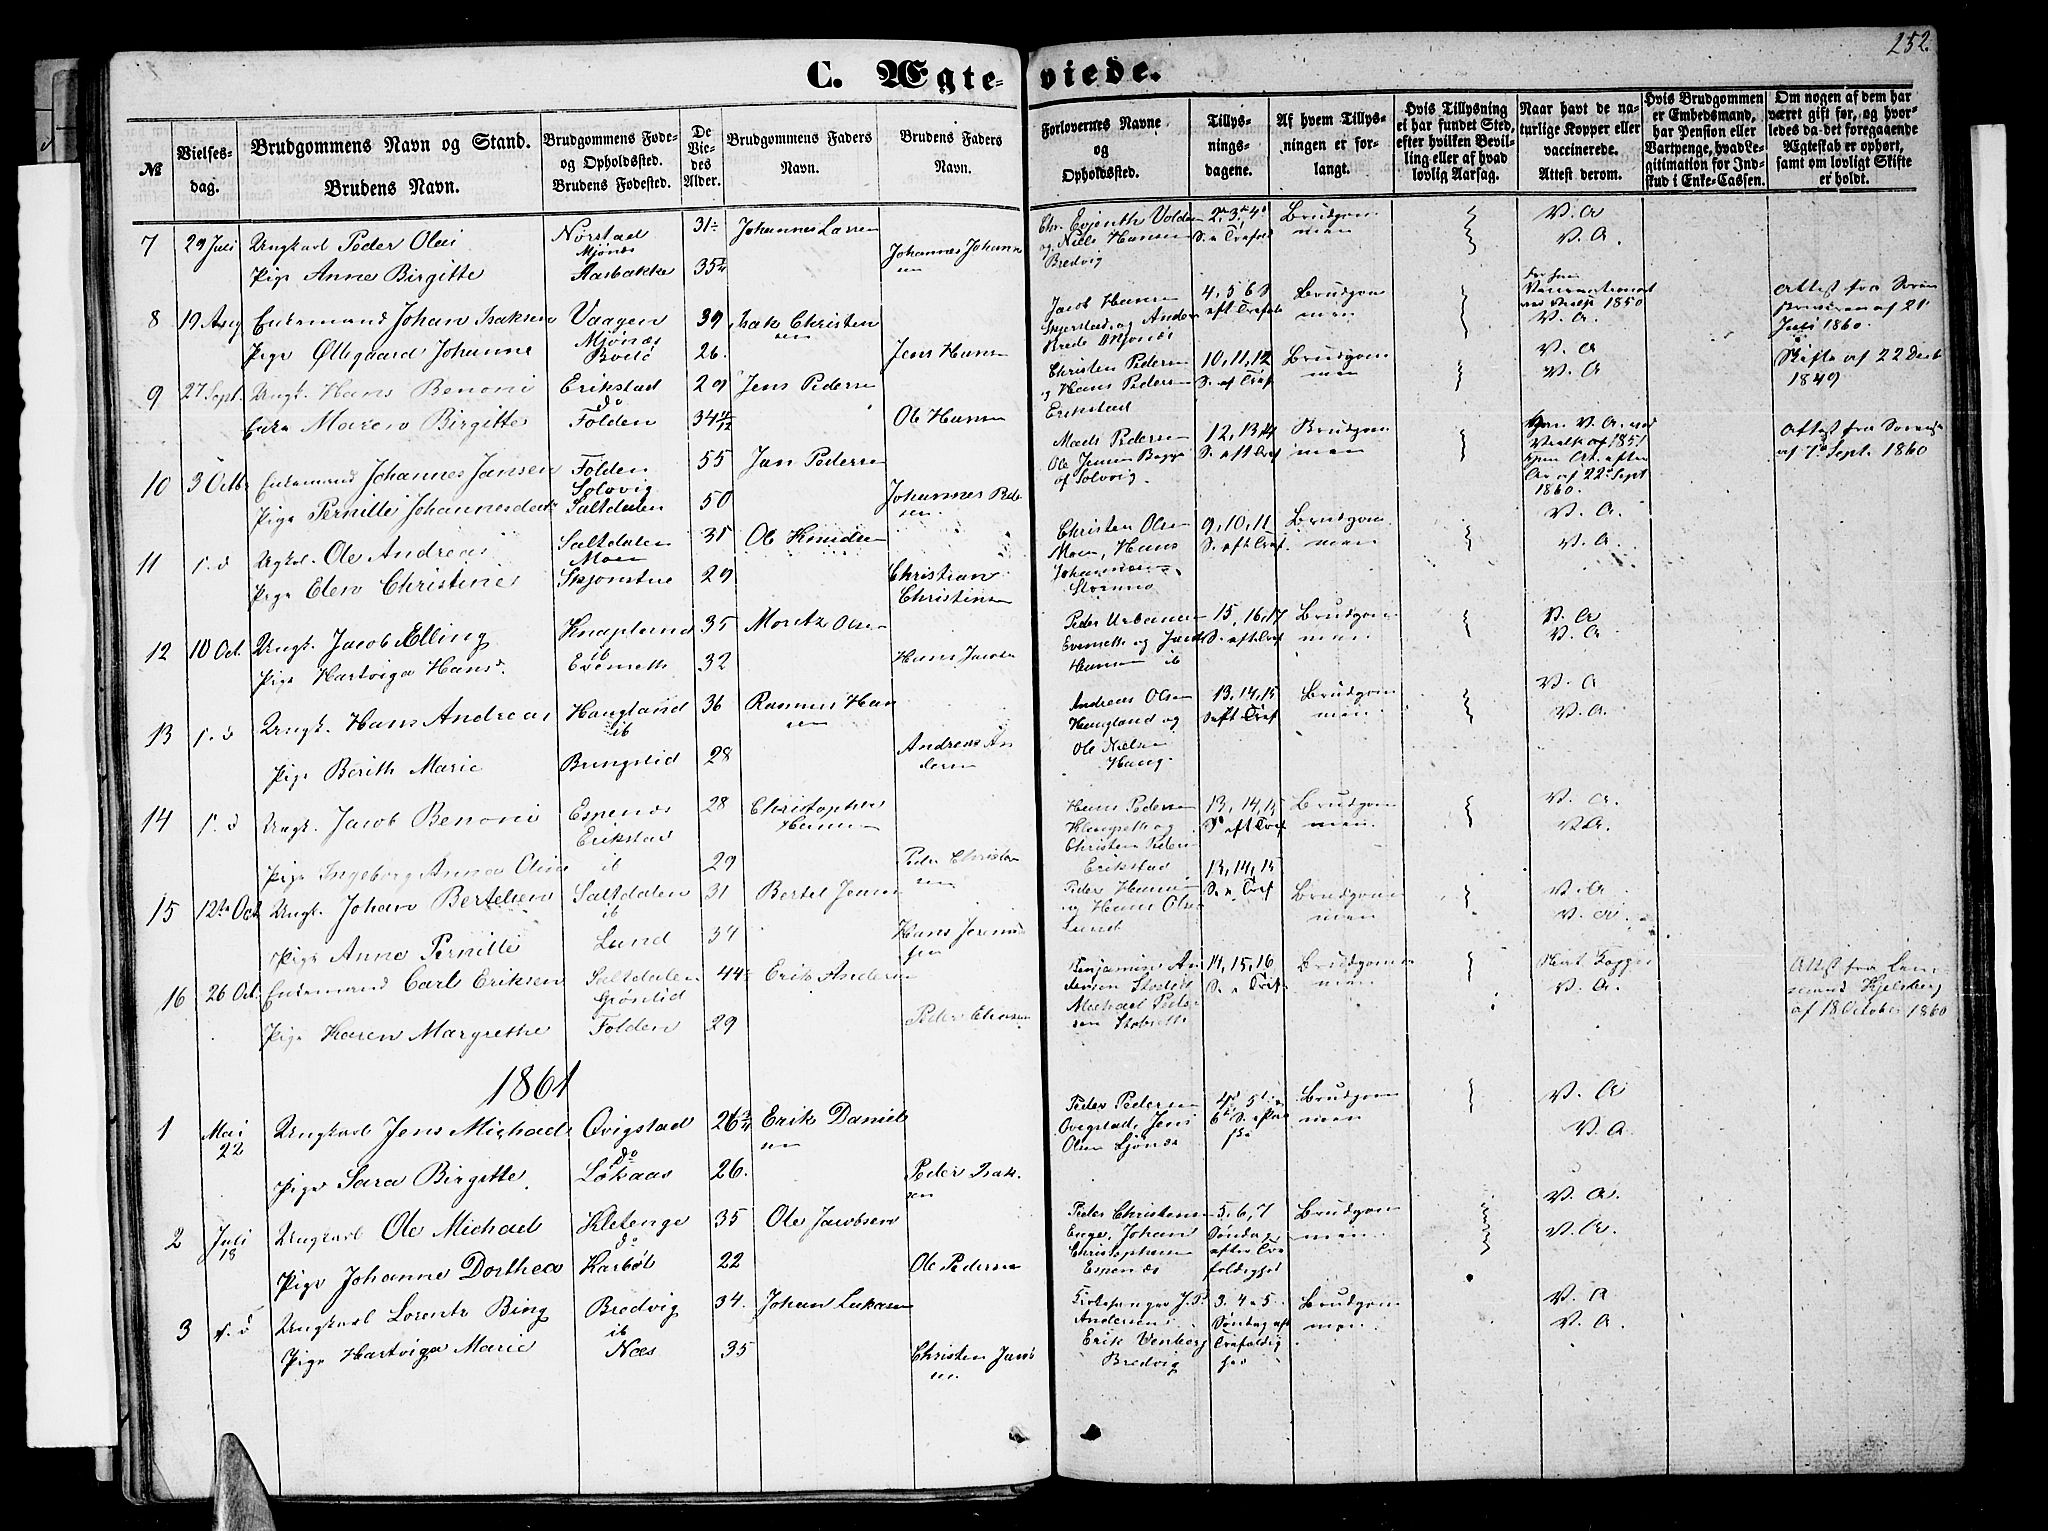 252.
C. Ægteviede.
№
Vielses-dag.
Brudgommens Navn og Stand.
Brudens Navn.
Brudgommens Føde- og Opholdssted.
Brudens Fødested.
De Viedes Alder.
Brudgommens Faders Navn.
Brudens Faders Navn.
Forlovernes Navne og Opholdssted.
Tillysningsdagene.
Af hvem Tillysningen er forlangt.
Hvis Tillysning ei har fundet Sted, efter hvilken Bevilling eller af hvad lovlig Aarsag.
Naar havt de naturlige Kopper eller vaccinerede.
Attest derom.
Hvis Brudgommen er Embedsmand, har Pension eller Vartpenge, hvad Legitimation for Indskud i Enke-Cassen.
Om nogen af dem har været gift før, og hvorledes da det foregaaende Ægteskab er ophørt, samt om lovligt Skifte er holdt.
7 29 Juli Ungkarl Peder Olai Norstad Mjønes 31 Johannes Larsen
Pige Anne Birgitte Aasbakke 35 Johannes Johannesen
Niels Hansen Bredvig 2, 3, 4 Brudgommen V. A V. A
8 19 Aug Enkemand Johan Isaksen Vaagen Mjønes 39 Isak Christensen
Pige Ollegaard Johanne 26. Jens Hansen
Jacob Hansen Skjerstad, og Anders 4, 5, 6 S. eft Trefol Brudgommen 1850 V. A.
Attest fra 21 Juli 1860.
9 27 Sept. Ungk. Hans Benoni Erikstad 29 Jens Pedersen
Enke Maren Birgitte do Folden 34 11/12 Ole Hansen
Christen Pedersen og Hans Pedersen Erikstad 10, 11, 12 S. af Tref Brudgommen V. A V. A
Skifte af 22 Decb 1849
10 3 Octbr Enkemand Johannes Jansen Folden Solvig 55 Jan Pedersen
Pige Pernille Johannesdatr Saltdalen 50 Johannes Pedersen
Mads Pedersen Ole Jensen af Solvig. 12, 13, 14 S. eft Tref Brudgommen af 1851 af 22 Sept 1860.
Attest fra af 7 Sept. 1860
11 s. d Ungkl. Ole Andreas Saltdalen Moen 31 Ole Knudsen
Pige Elen Christine Skjønstue 29 Christian Christensen
Christen Olsen Moen, Hans Johannesen 9, 10, 11 S. eft Tref. Brudgommen V. A V. A.
12 10 Oct. Ungk. Jacob Elling Knaplund ib 35 Moritz Olsen
Pige Hartviga Hansd. Evenseth 32 Hans Jacobsen
Peder Urbansen Evenseth og Hansen ib 15, 16, 17 S. eft Tref Brudgommen V. A V. A.
13 s. d Ungk. Hans Andreas Haugland ib 36 Rasmus Hansen
Pige Berith Marie Bringslid 28 Andreas Andersen
Andreas Olsen Haugland og Ole Nielsen Haug. 13, 14, 15 S eft Tref Brudgommen V. A V. A.
14 s. d Ungk. Jacob Benoni Espenes Erikstad 28 Christopher Hansen
Pige Ingeborg Anna Olina ib 29 Peder Christensen
Hans Pedersen Klungseth og Christen Pedersen Erikstad 13, 14, 15 S eft Tref Brudgommen V. A. V. A.
15 12te Oct Ungk. Johan Bertelsen Saltdalen ib 31 Bertel Jensen
Pige Anne Pernille Lund 34 Hans Jeremiassen
Peder Hansen og Hans Olsen Lund 13, 14, 15 S. e Tref Brudgommen V. A V. A.
16 26 Oct. Enkemand Carl Eriksen Saltdalen Grønlid 44 Erik Andersen
Pige Karen Margrethe Folden 29 Peder
Benjamin Andersen Michael Pedersen 14, 15, 16 S. e Tref. Brudgommen Havt Kopper V. A.
Attest fra Lensmand Kjelsberg af 18 October 1860
1861
1 Mai 22 Ungkarl Jens Michael Øvigstad 26 3/4 Erik Danielsen
Pige Sara Birgitte do Løkaas 26. Peder Isaksen
Peder Pedersen Øvigstad, Jens Olsen Ljønes 4, 5 og 6 S. e Paaske Brudgommen V. A V. A.
2 Juli 18 Ungkarl Ole Michael Kletenge 35 Ole Jacobsen
Pige Johanne Dorthea do Karbøl 22 Ole Pedersen
Peder Christensen Enge, Johan Christophersen Espenes 5, 6, 7 Søndag efter Trefoldighed Brudgommen. V. A. V. A.
3 s. d Ungkarl Lorents Bing Bredvig 34. Johan Lukasen
Pige Hartviga Marie ib Næs 35 Christen Jacobsen
Kirkesanger J. P. Andersen, Erik Venberg Bredvig 3. 4. 5. Søndag eft Trefoldighed Brudgommen. V. A V. A.